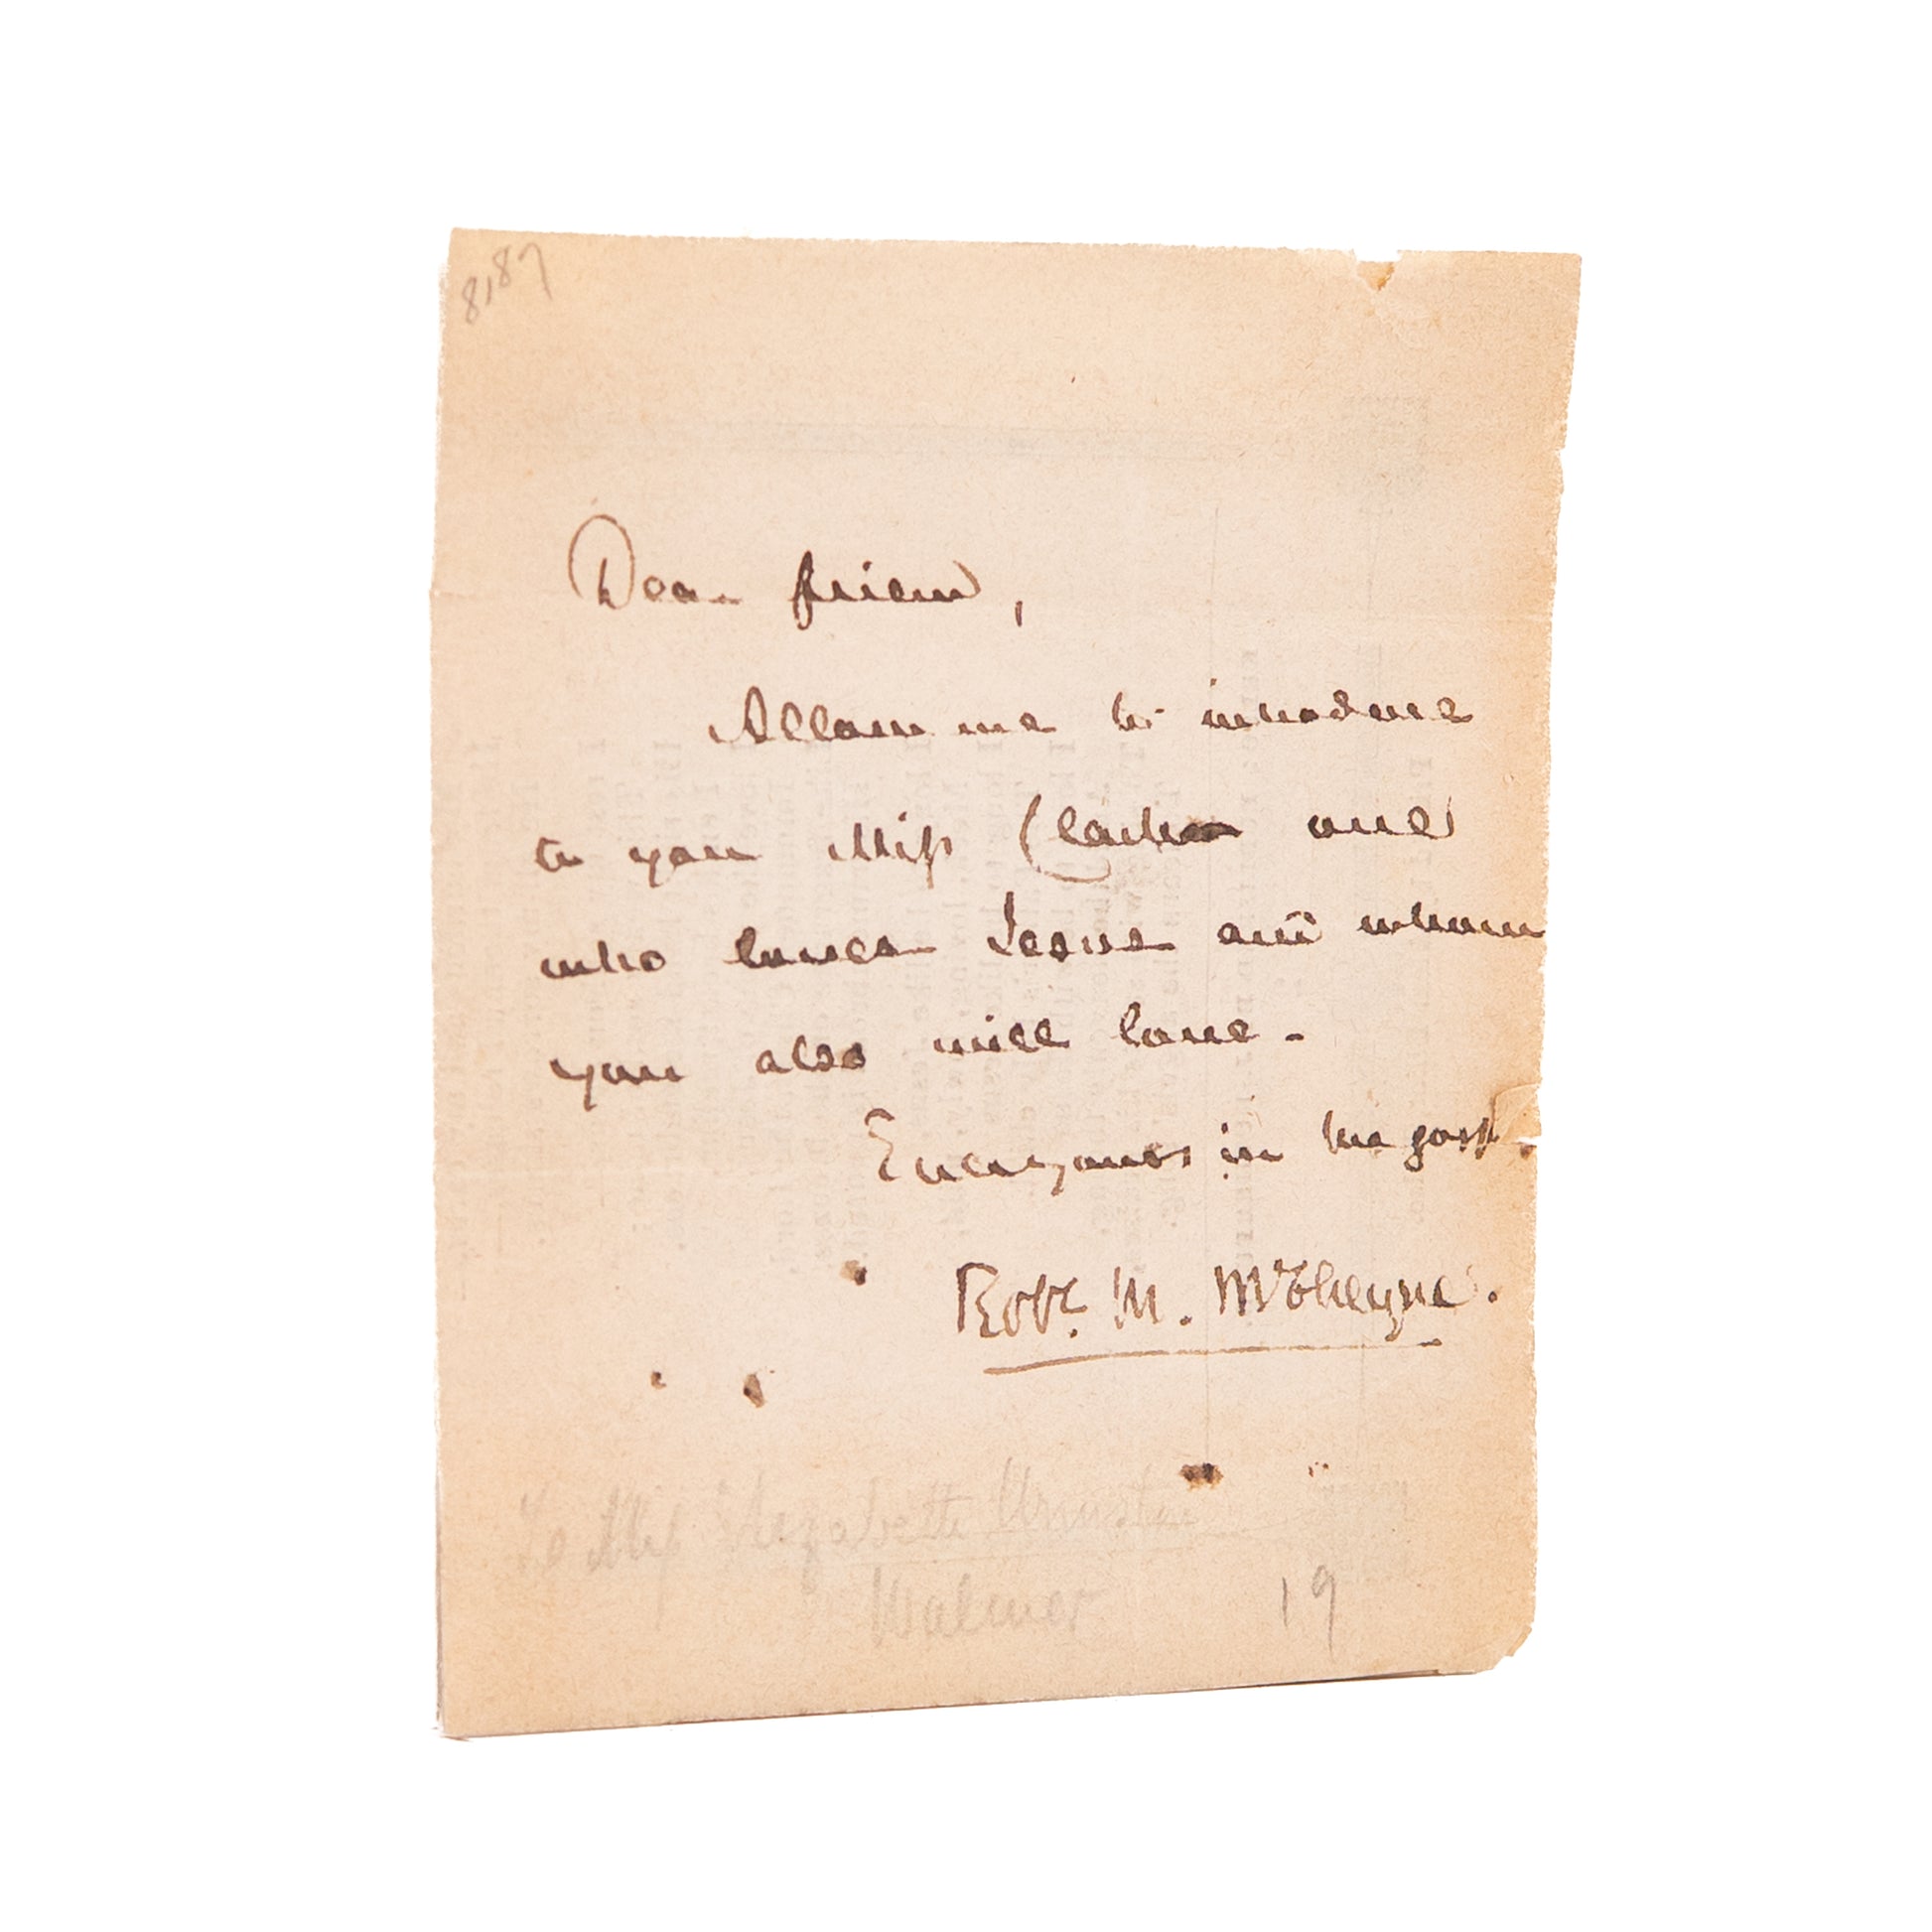 8187
Dear friend,
Allow me to introduce
to you Miss one
who loves Jesus and whom
you also will love -
Ever yours in the gospl.
Robt. M. McCheyne.
To Miss Elizabeth
Walmer
19